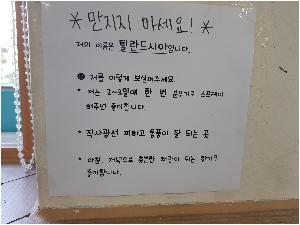 *만지지 마세요!*
저의 이름은 틸란드시아입니다.
● 저를 이렇게 보살펴주세요.
* 저는 2~3일에 한 번 분무기로 스프레이
해주면 좋아합니다.
* 직사광선 피하고 통풍이 잘 되는 곳
* 아침, 저녁으로 충분한 환기가 되는 향기를
좋아합니다.